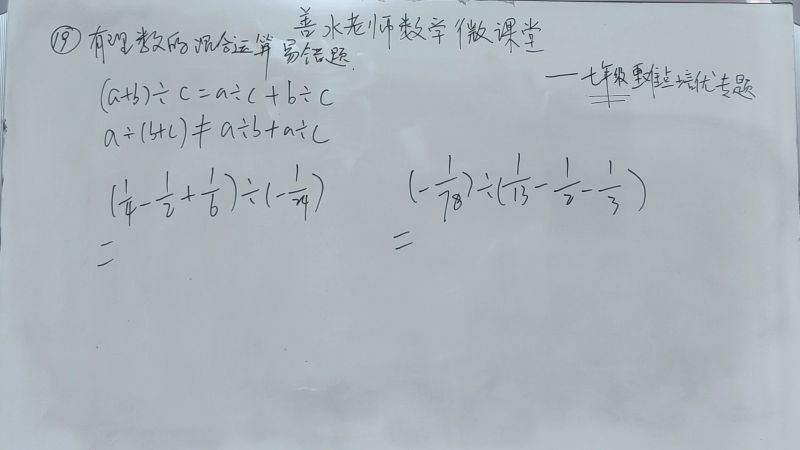 善水老师数学微课堂
⑲有理数的混合运算易错题.
—七年级重难点培优专题
(a+b)÷c=a÷c+b÷c
a÷(b+c)≠a÷b+a÷c
(1/4-1/2+1/6)÷(-1/24)
=
(-1/78)÷(1/13-1/2-1/3)
=